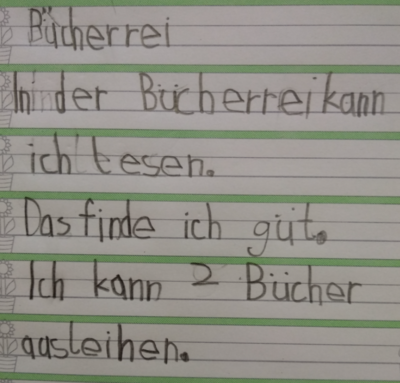 Bücherrei
In der Bücherrei kann
ich lesen.
Das finde ich güt.
Ich kann 2 Bücher
ausleihen.